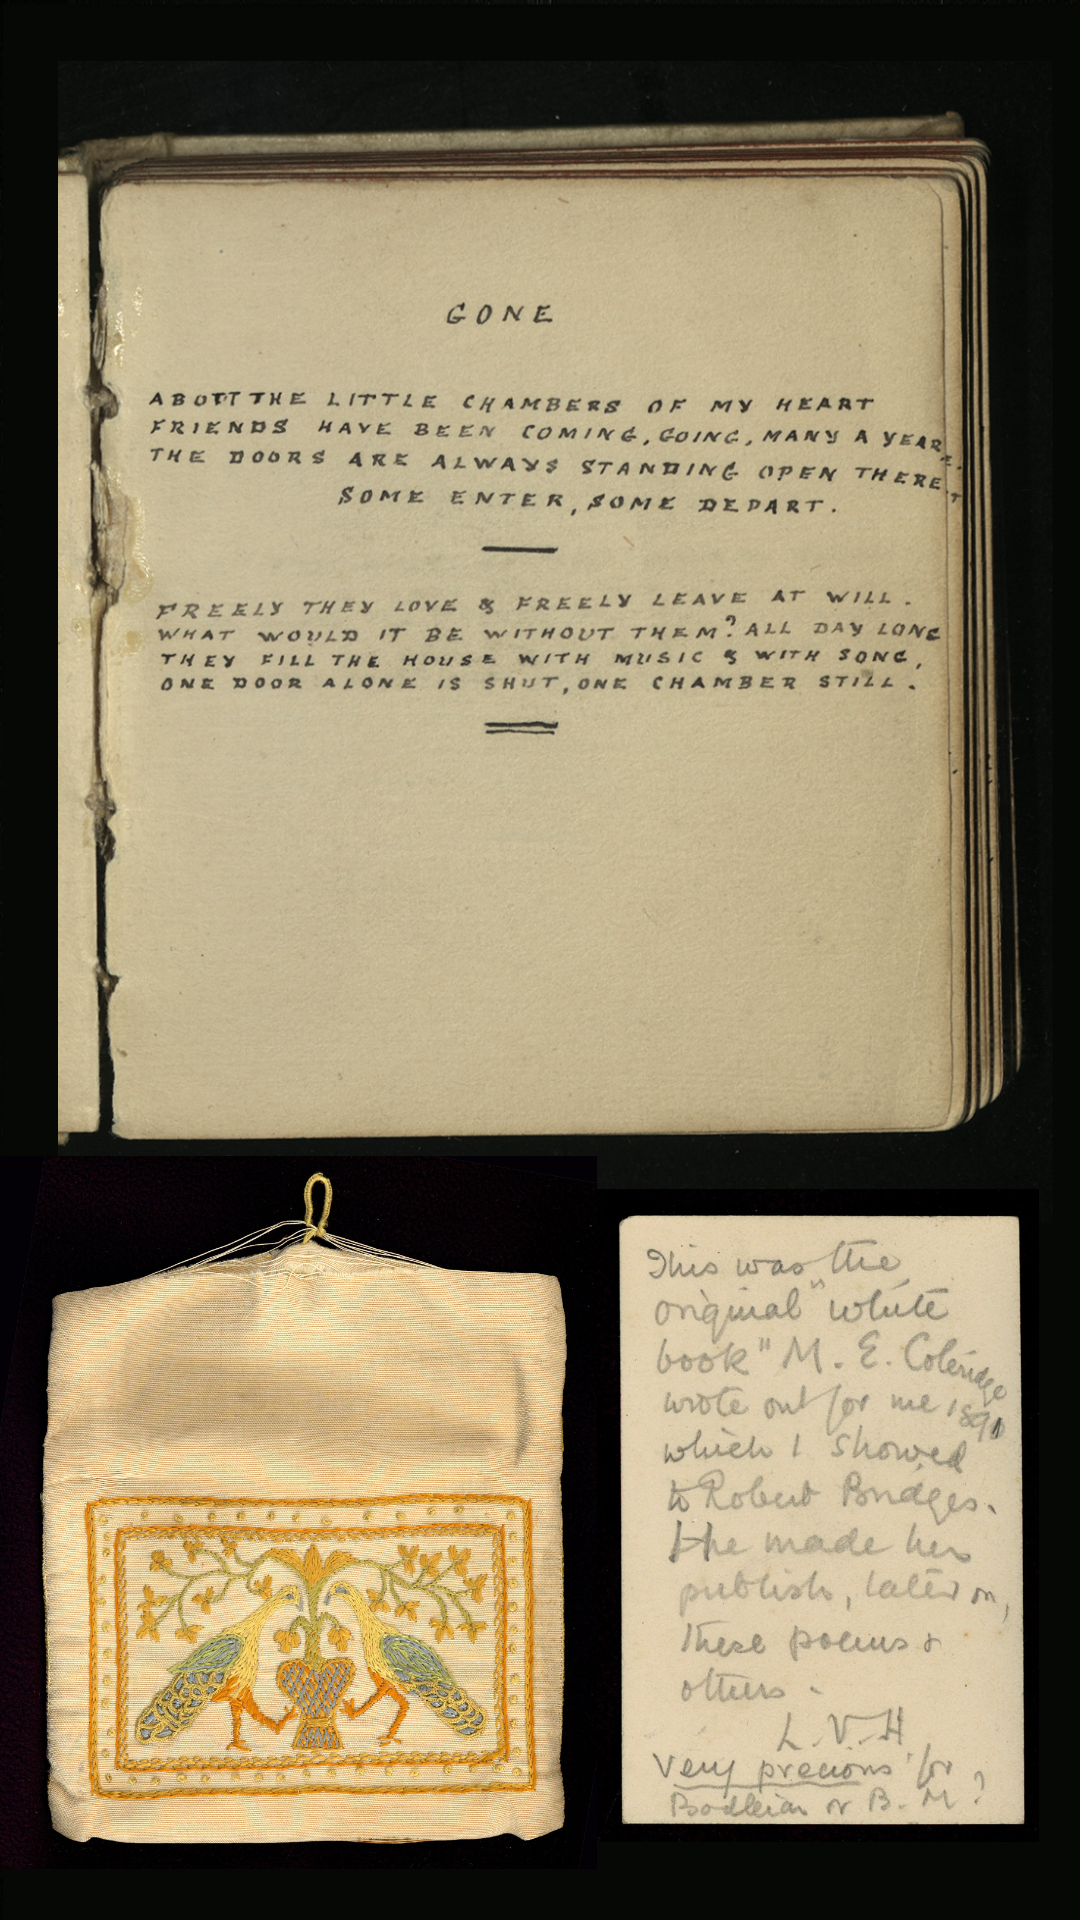 GONE
ABOUT THE LITTLE CHAMBERS OF MY HEART
FRIENDS HAVE BEEN COMING, GOING, MANY A YEAR.
THE DOORS ARE ALWAYS STANDING OPEN THERE.
SOME ENTER, SOME DEPART.
FREELY THEY LOVE & FREELY LEAVE AT WILL.
WHAT WOULD IT BE WITHOUT THEM? ALL DAY LONG
THEY FILL THE HOUSE WITH MUSIC & WITH SONG,
ONE DOOR ALONE IS SHUT, ONE CHAMBER STILL.
This was the
original "white
book" M. E. Coleridge
wrote out for me
which I showed
to Robert Bridges.
He made her
publish, later on,
these poems &
others.
L. V. H
Very precious for
Bodleian or B. M?